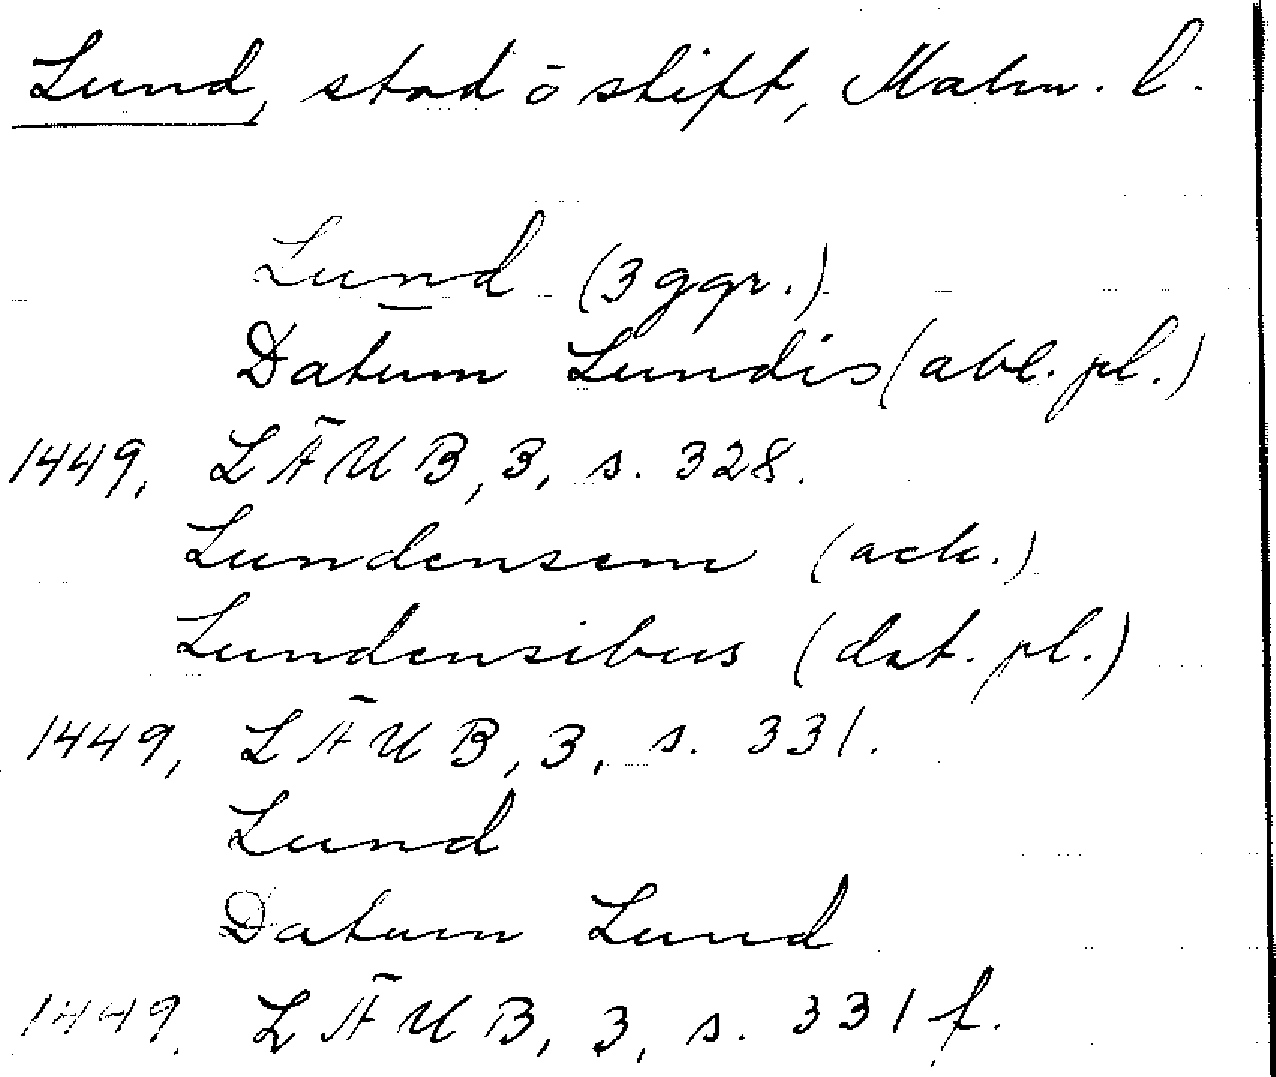 Lund, stad o skift, Malm. l.
Lund (3 ggr.)
Datum Lundis (abl. pl.)
1449, LÄUB, 3, s. 328.
Lundensem (ack.)
Lundensibus (dat. pl.)
1449, LÄUB, 3, s. 331.
Lund
Datum Lund
1449. LÄUB, 3, s. 331 f.